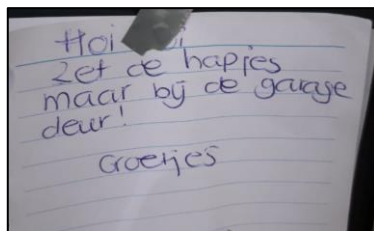 Hoi
Zet de hapjes
maar bij de garage
deur!
Groetjes